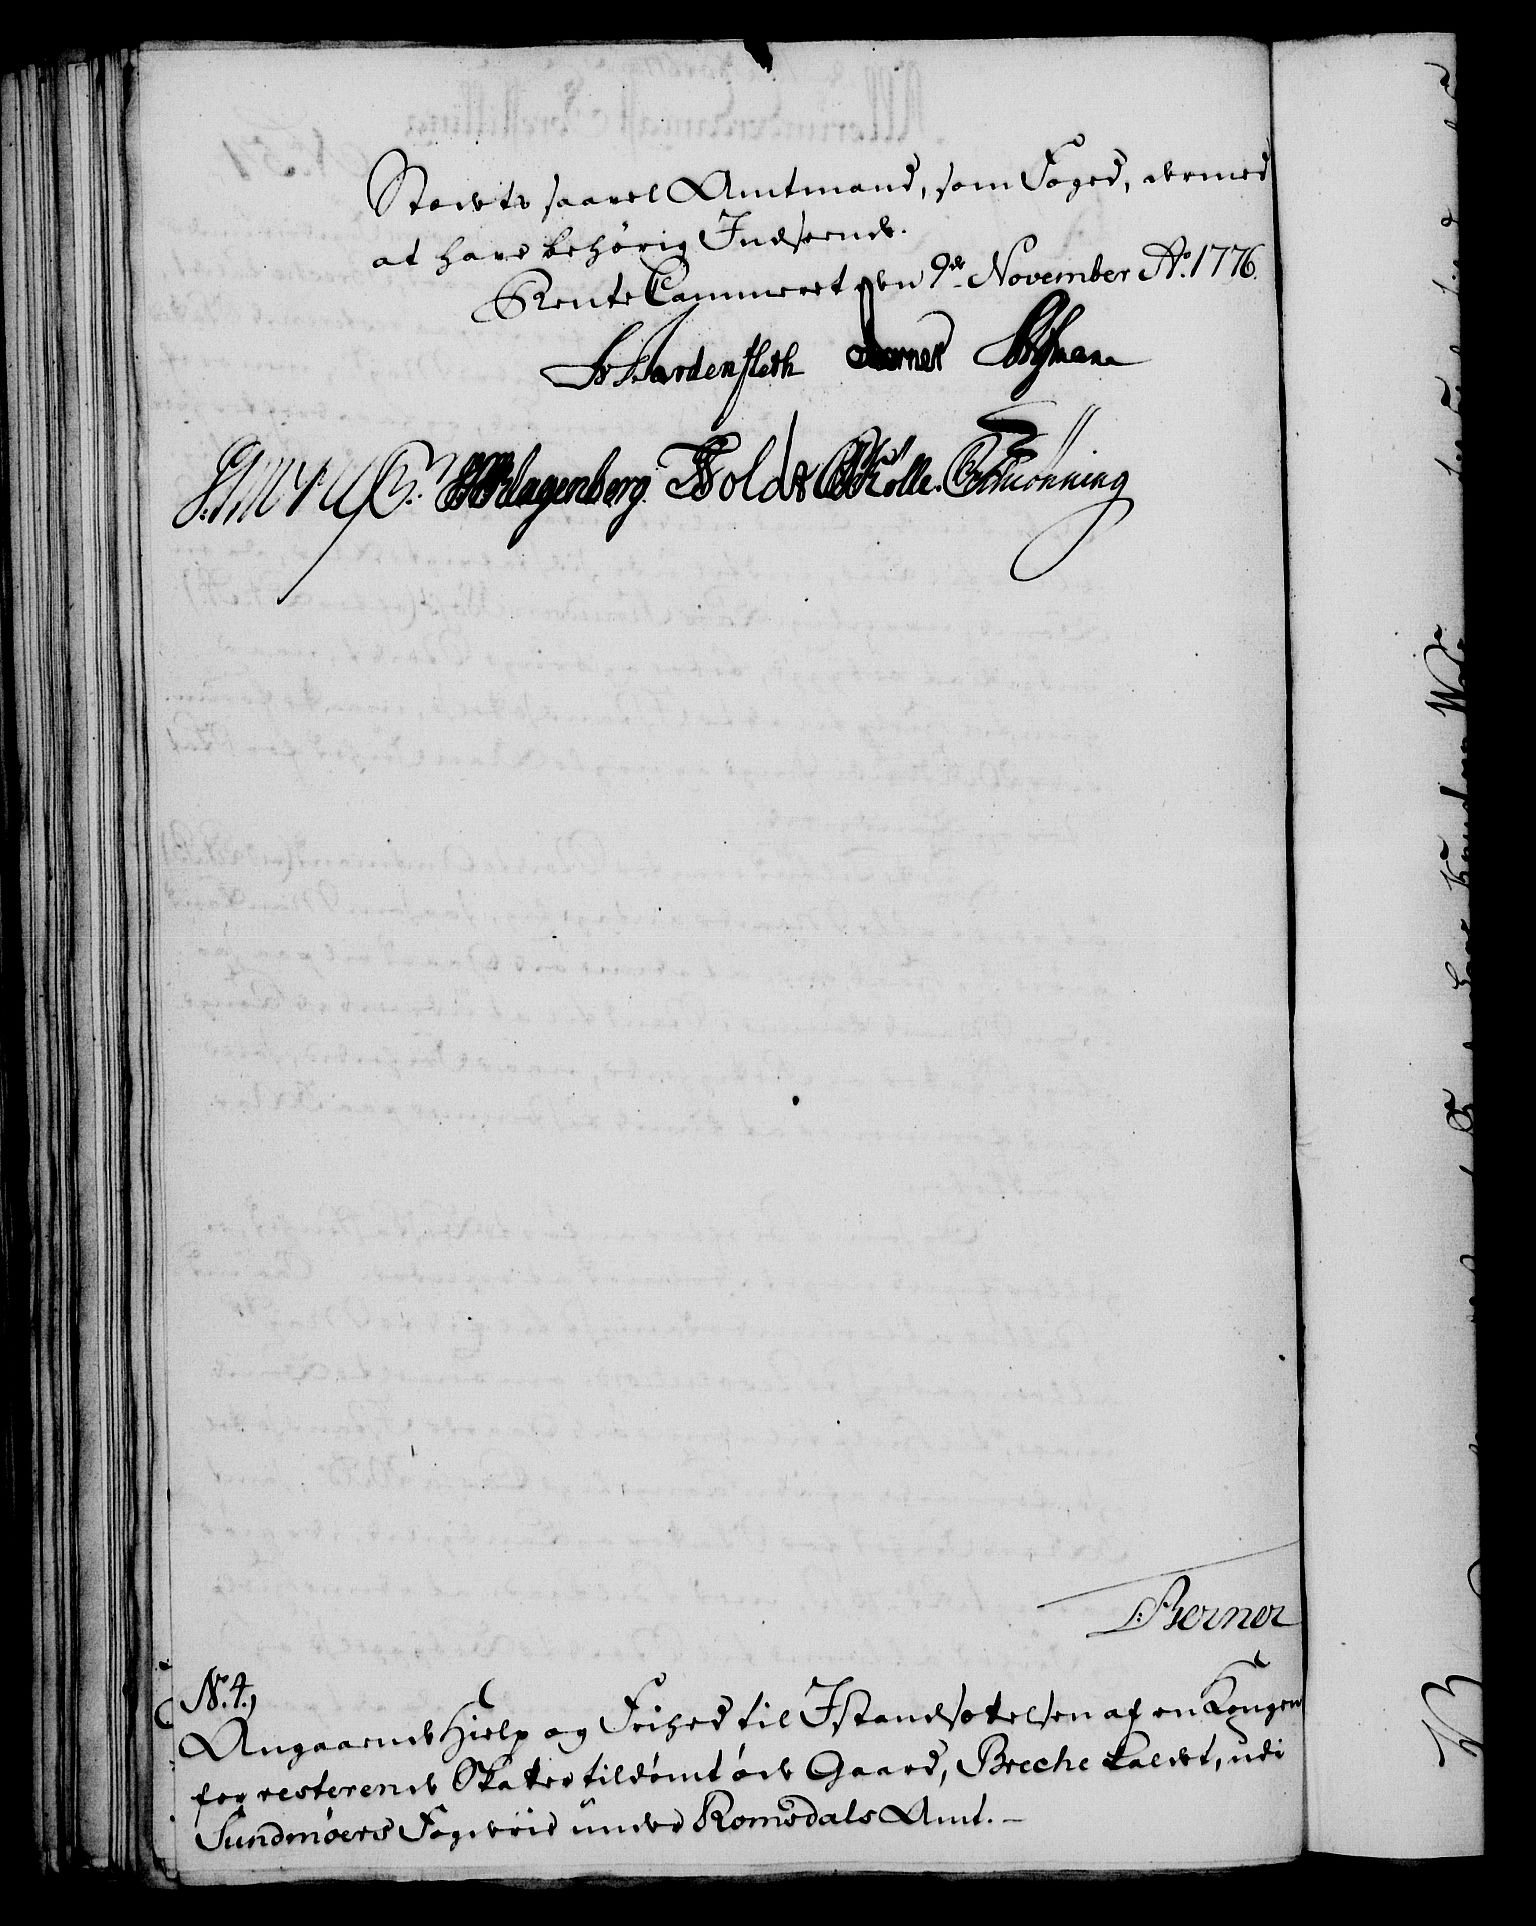 Stedets saavel Amtmand, som Foged, dermed
at have behörig Indseende.
RenteCammeret den 9de November Ao. 1776.
Hardenfleth Berner
Klagenberg. Holdt Kolle. Schiönning
Berner
No. 4,
Angaaende Hielp og Frihed til Istandsættelsen af en Kongen
for resterende Skatter tildömt öde Gaard, Breche kaldet, udi
Sundmöers Fogderie under Romsdals Amt. –